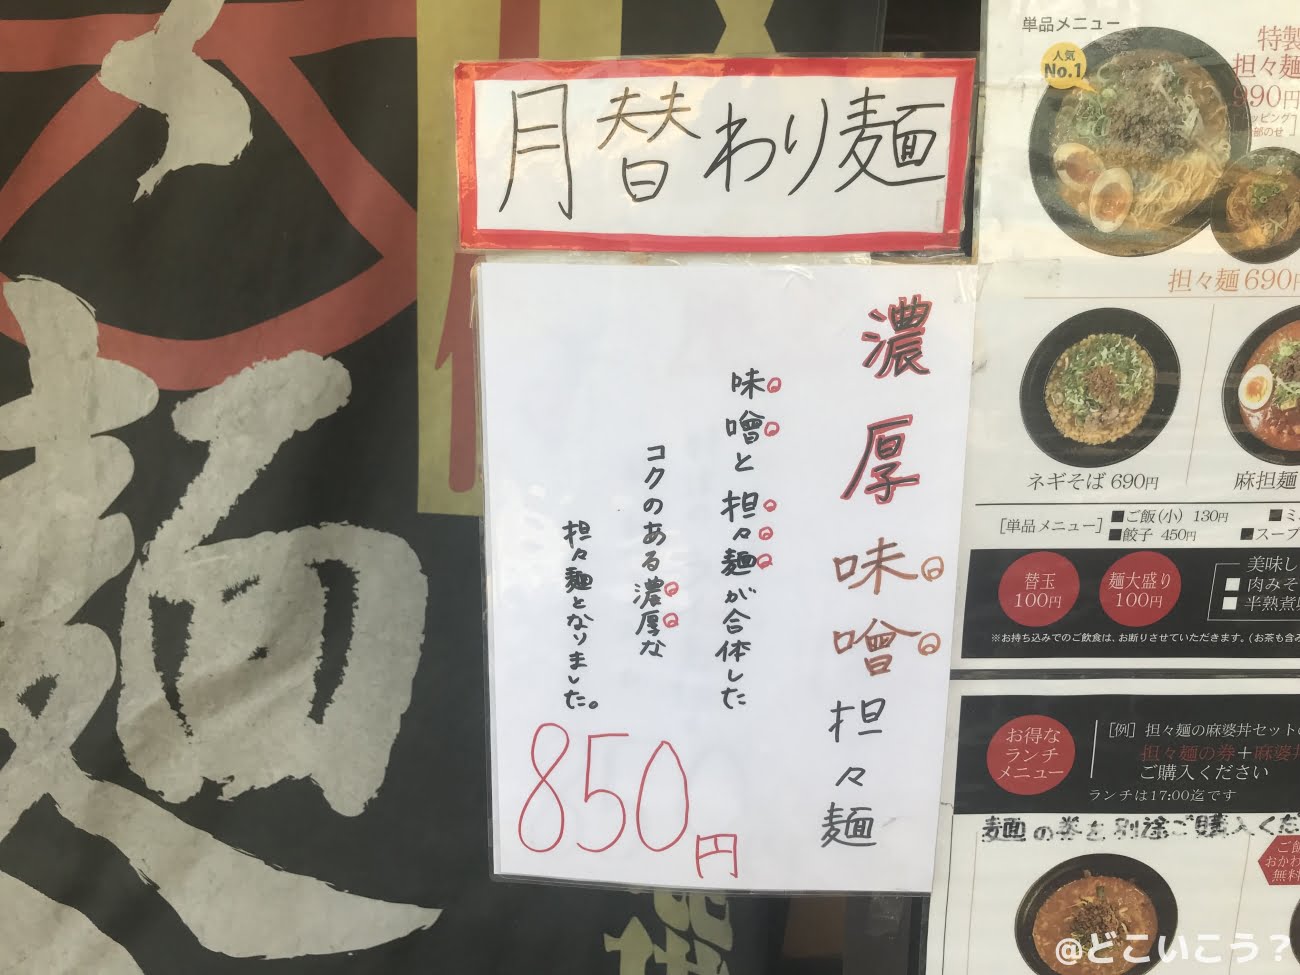 月替わり麺
濃厚味噌担々麺
味噌と担々麺が合体した
コクのある濃厚な
担々麺となりました。
850円
麺
単品メニュー
人気
No.1
特製
担々麺
990円
担々麺 690円
ネギそば 690円
麻担麺
[単品メニュー]
■ご飯(小) 130円
■餃子 450円
■ミ
■スープ
替玉
100円
麺大盛り
100円
美味し
■肉みそ
■半熟煮
※お持ち込みでのご飲食は、お断りさせていただきます。(お茶も含み
お得な
ランチ
メニュー
[例] 担々麺の麻婆丼セットの
担々麺の券＋麻婆丼
ご購入ください
ランチは17:00迄です
麺の券を別途ご購入くだ
ご飯
おかわ
無料
@どこいこう？